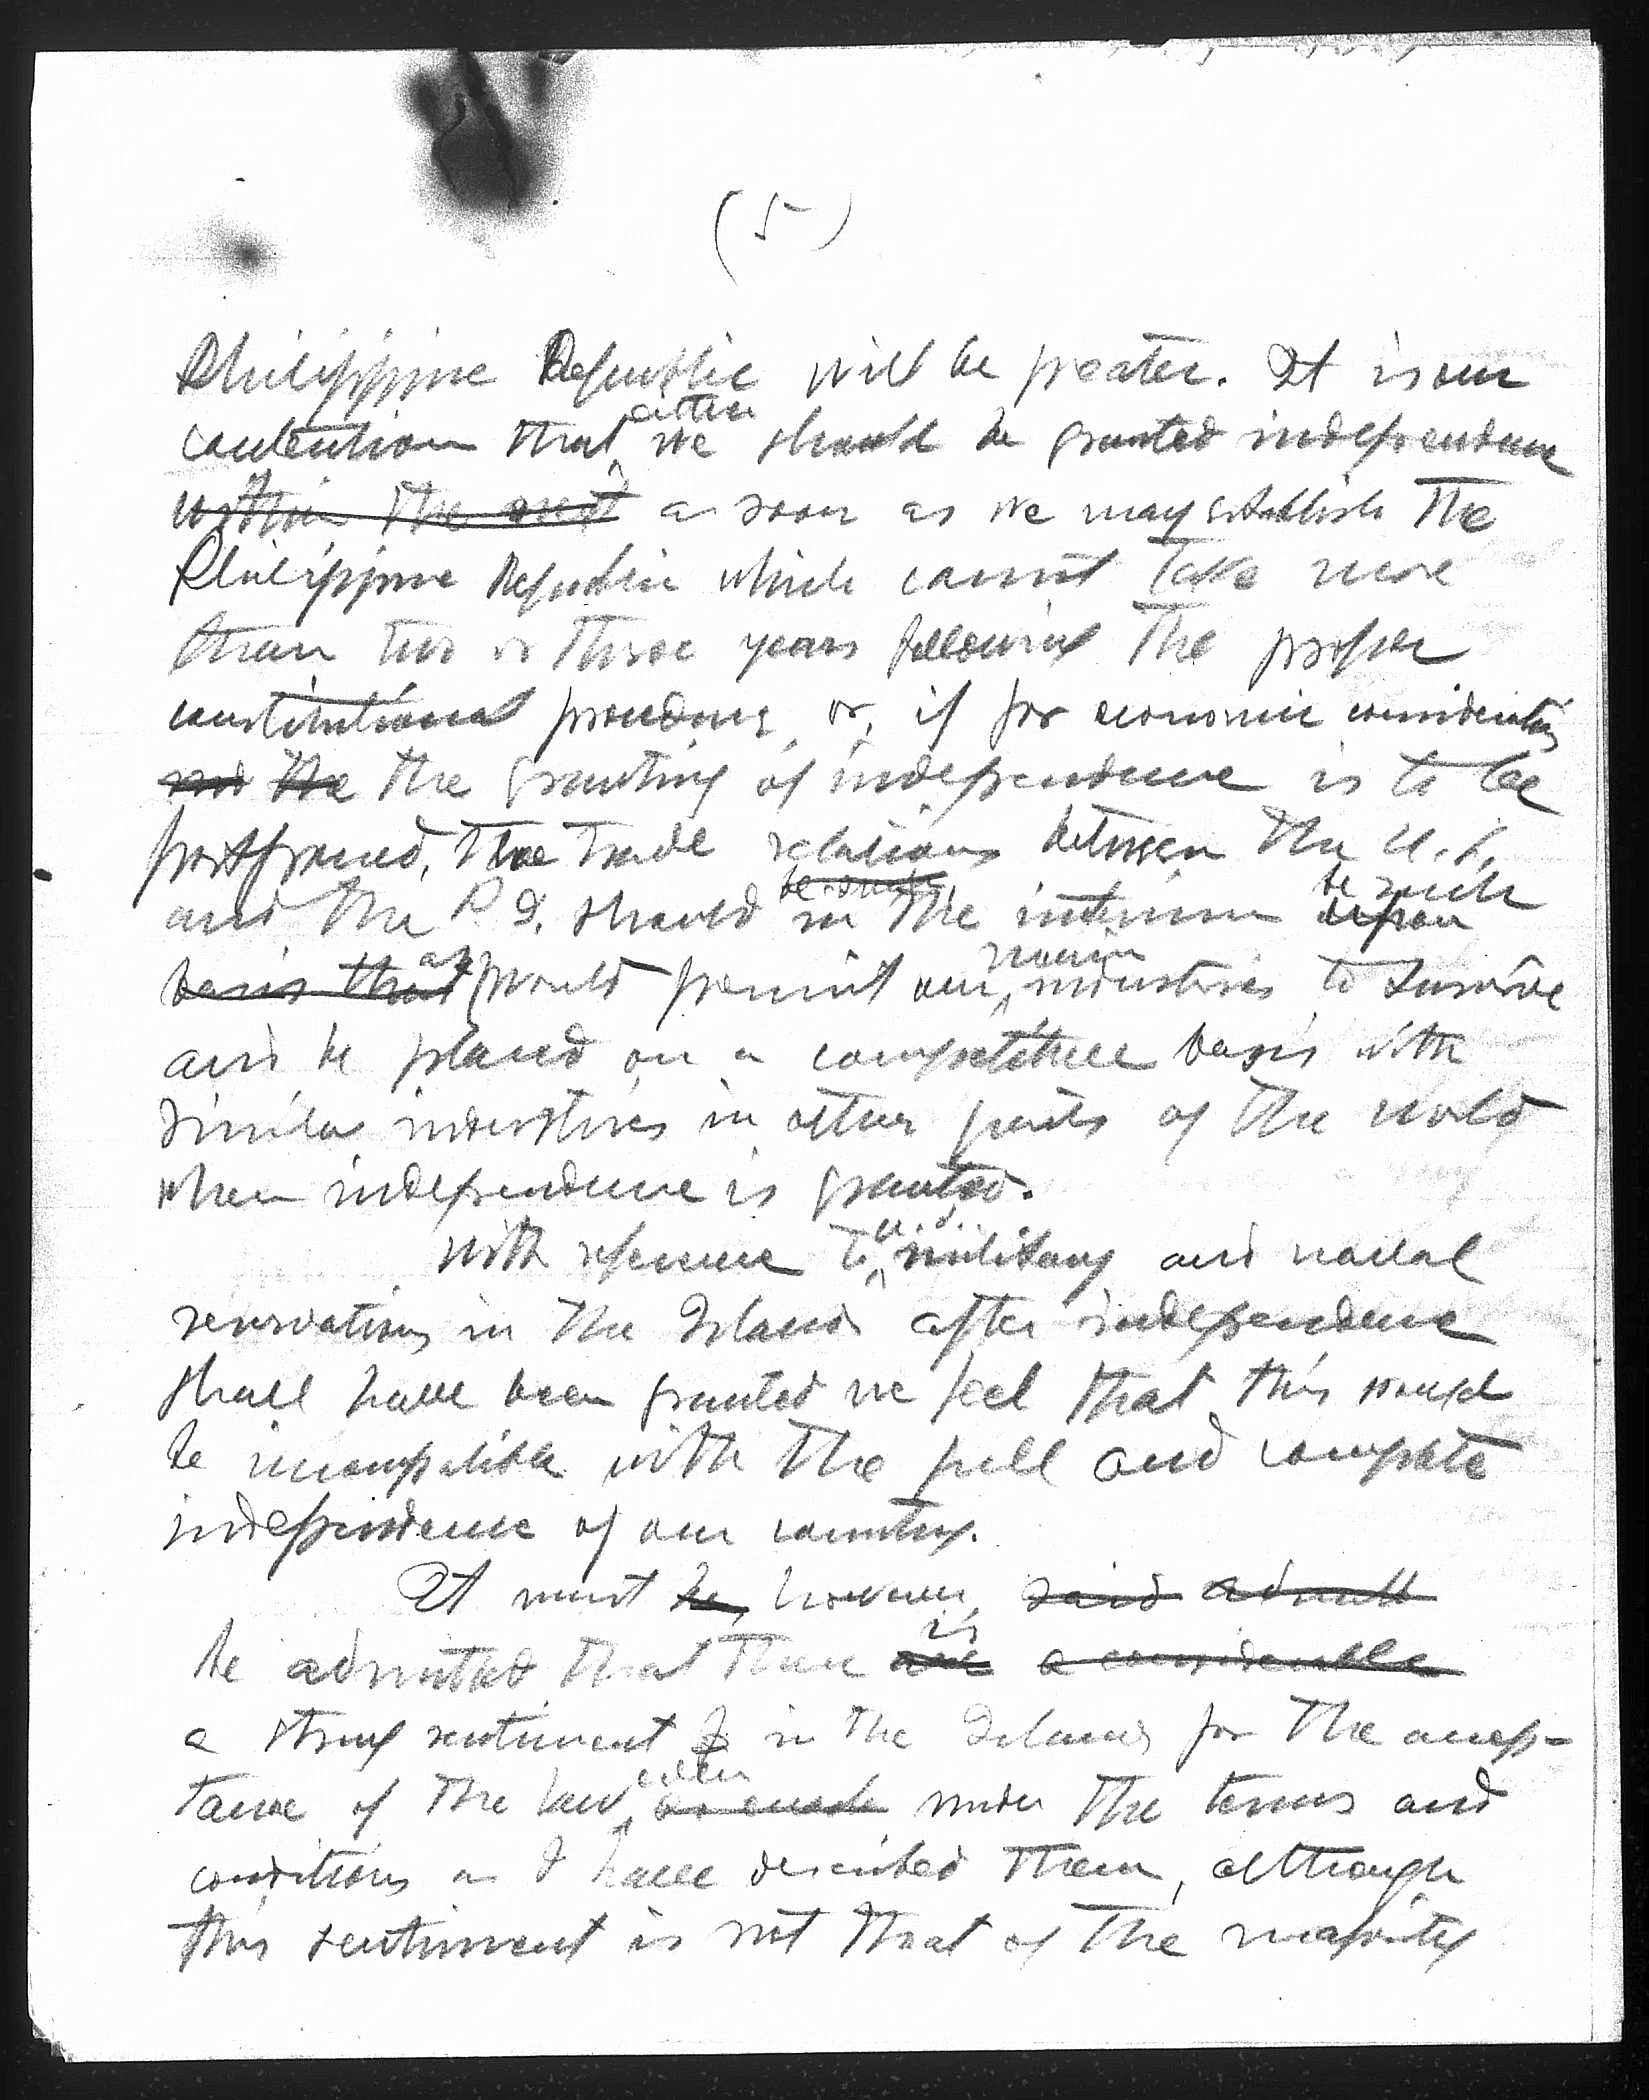 (5)
Philippine Republic will be greater. It is our
contention that either we should be granted independence
within the next as soon as we may establish the
Philippine Republic which cannot take more
than two or three years following the proper
constitutional procedure, or, if for economic considerations
the the granting of independence is to be
postponed, the trade relations between the U.S.
and the P.I. should be such in the interim be such upon
basis that as would permit our major industries to survive
and be placed on a competitive basis with
similar industries in other parts of the world
when independence is granted.
With reference to U.S. military and naval
reservations in the Islands after independence
shall have been granted we feel that this would
be incompatible with the full and complete
independence of our country.
It must be, however, said admitt
be admitted that there is are a considerable
a strong sentiment in the Islands for the accep-
tance of the law even under the terms and
conditions as I have described them, although
this sentiment is not that of the majority